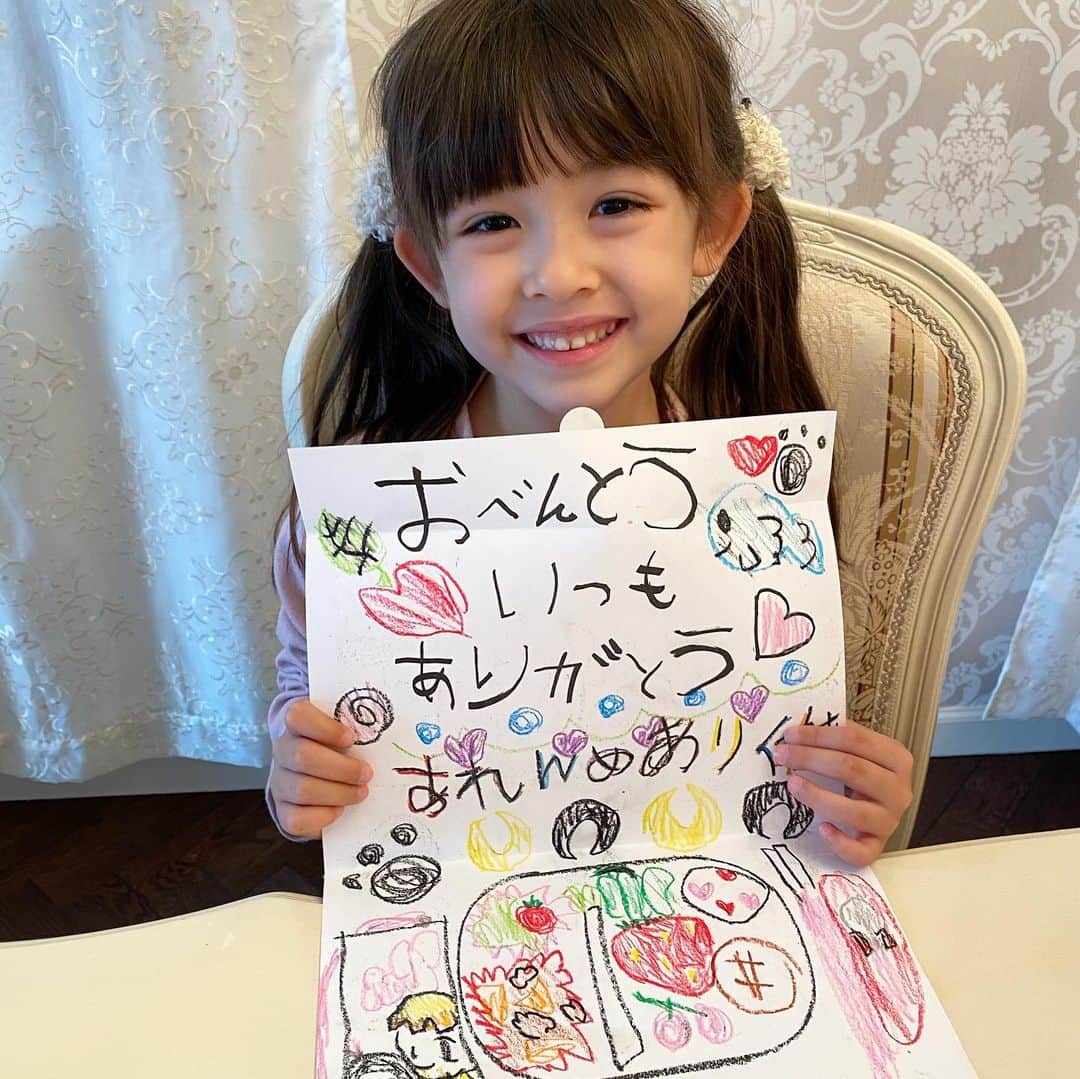 おべんとう
いつも
ありがとう
まれんめあり